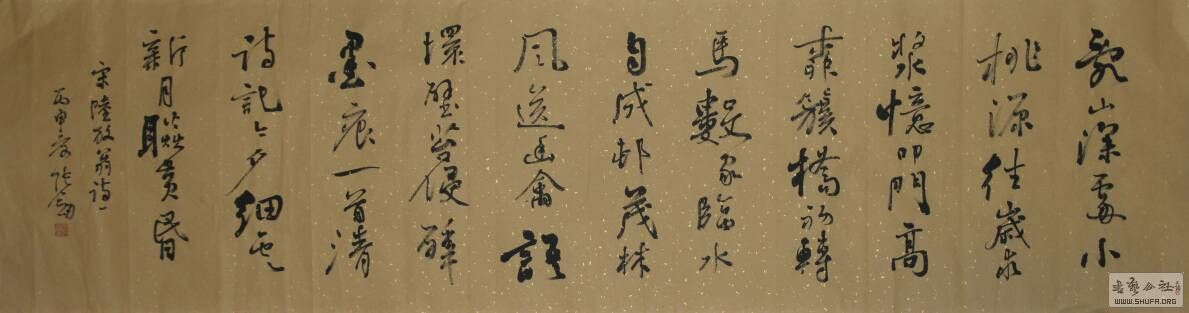 亂山深處小
桃源往歲求
漿憶叩門高
柳簇橋初轉
馬數家臨水
自成邨茂林
風送幽禽語
壞壁苔侵醉
墨痕一首清
詩記今夕細雲
新月耿黃昏
宋陸放翁詩一
丙申
书艺公社
WWW.SHUFA.ORG